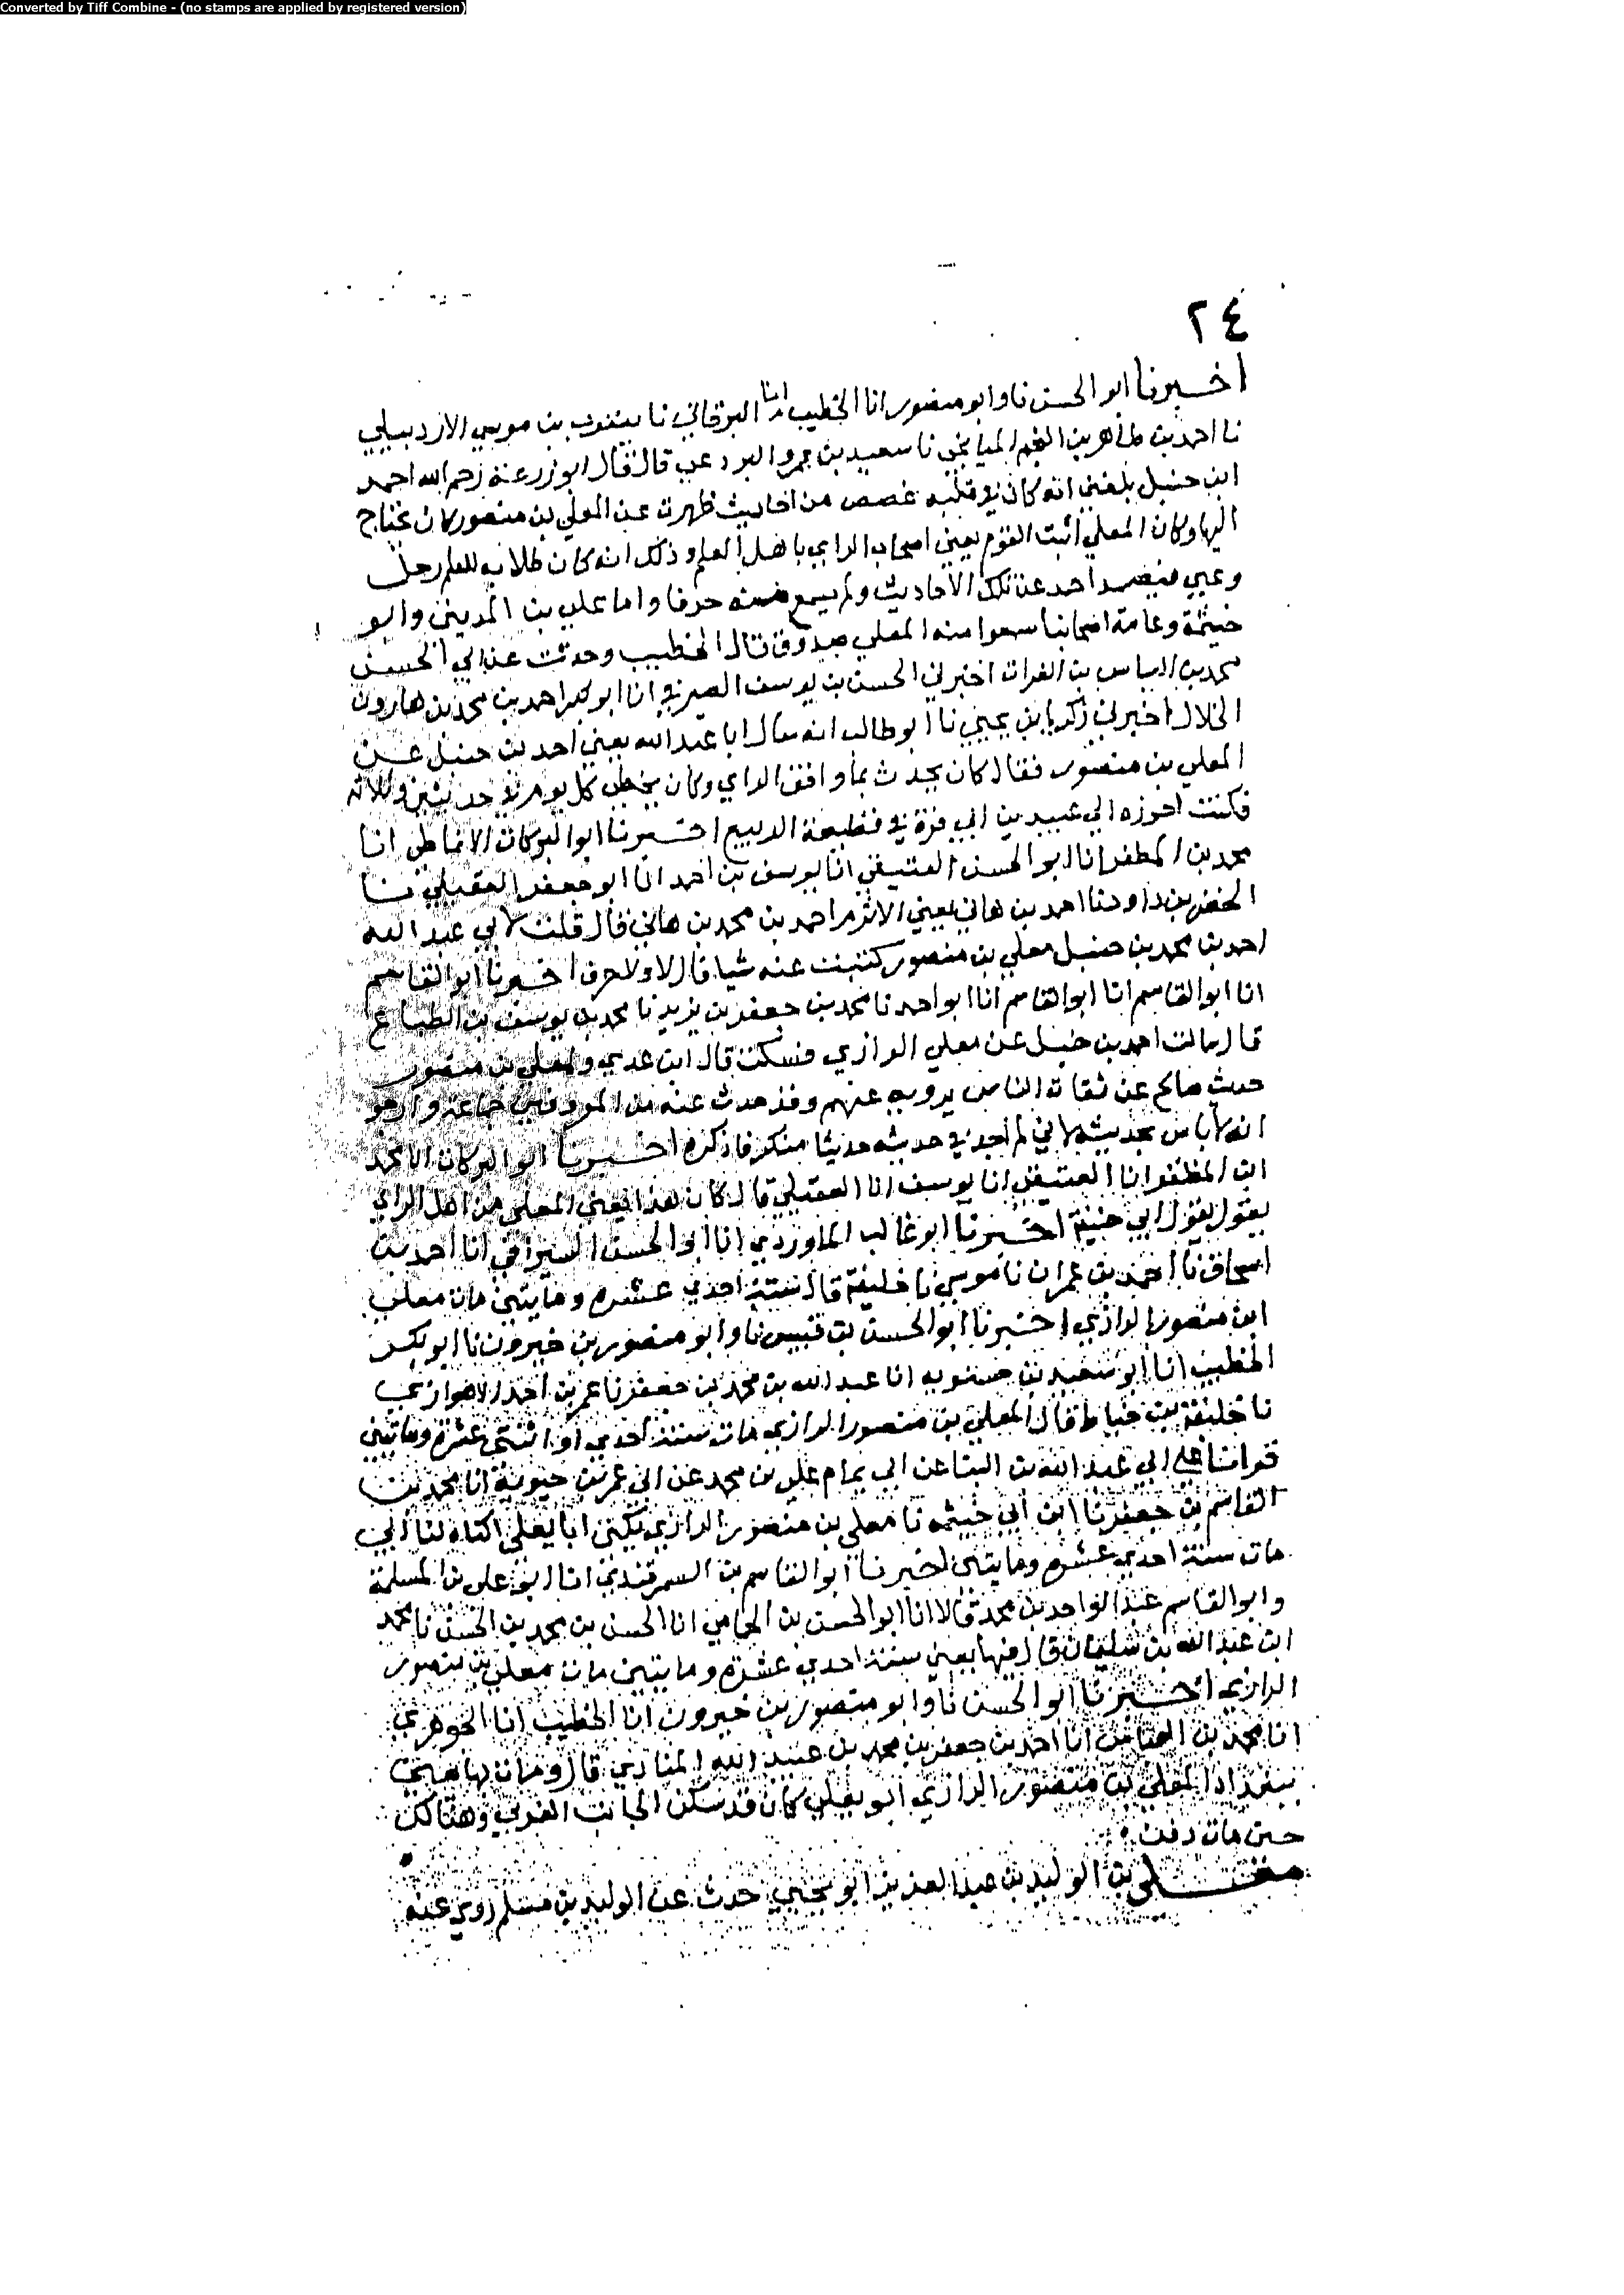 Converted by Tiff Combine - (no stamps are applied by registered version)
٢٤
اخبرنا ابو الحسن نا وابو منصور انا الخطيب انا البرقاني نا يعقوب بن موسي الاردبيلي
نا احمد بن طاهر بن النجم الميانجي نا سعيد بن عمرو البردعي قال قال ابو زرعة رحم الله احمد
ابن حنبل بلغني انه كان في قلبه غصص من احاديث ظهرت عن المعلي بن منصور كان يحتاج
اليها وكان المعلي اثبت القوم يعني اصحاب الراي باهل العلم وذلك انه كان طلابه للعلم رحل
وعني فتصبر احمد عن تلك الاحاديث ولم يسمع منه حرفا واما علي بن المديني وابو
خيثمة وعامة اصحابنا سمعوا منه المعلي صدوق قال الخطيب وحدثت عن ابي الحسن
محمد بن العباس بن الفرات اخبرني الحسن بن يوسف الصيرفي انا ابو بكر احمد بن محمد بن هارون
الخلال اخبرني زكريا بن يحيي نا ابو طالب انه سال ابا عبد الله يعني احمد بن حنبل عن
المعلي بن منصور فقال كان يحدث بما وافق الراي وكان يخطي كل يوم في حديثين وثلاثه
فكنت احوزه الي عبيد بن ابي قرة في قطيعة الربيع اخبرنا ابو البركات الانماطي انا
محمد بن المظفر انا ابو الحسن العتيقي انا يوسف بن احمد انا ابو جعفر العقيلي نا
الخضر بن داود نا احمد بن هاني يعني الاثرم احمد بن محمد بن هاني قال قلت لابي عبد الله
احمد بن محمد بن حنبل معلي بن منصور كتبت عنه شيا قال لا ولا حرف اخبرنا ابو القاسم
انا ابو القاسم انا ابو القاسم انا ابو احمد نا محمد بن جعفر بن يزيد نا محمد بن يوسف بن الطباع
قال سالت احمد بن حنبل عن معلي الرازي فسكت قال ابن عدي ولمعلي بن منصور
حديث صالح عن ثقات الناس يرويه عنهم وقد حدث عنه من الموثوقين جماعة وارجو
انه لا باس بحديثه لاني لم اجد في حديثه حديثا منكرا فاذكره اخبرنا ابو البركات انا محمد
ابن المظفر انا العتيقي انا يوسف انا العقيلي قال كان هذا يعني المعلي من اهل الراي
يقول بقول ابي حنيفة اخبرنا ابو غالب الماوردي انا ابو الحسن السيرافي انا احمد بن
اسحاق نا احمد بن عمران نا موسي نا خليفة قال سنة احدي عشرة ومايتين مات معلي
ابن منصور الرازي اخبرنا ابو الحسن بن قبيس نا وابو منصور بن خيرون نا ابو بكر
الخطيب انا ابو سعيد بن حسنويه انا عبد الله بن محمد بن جعفر نا عمر بن احمد الاهوازي
نا خليفة بن خياط قال المعلي بن منصور الرازي مات سنة احدي او اثنتي عشرة ومايتين
قرانا علي ابي عبد الله بن البنا عن ابي تمام علي بن محمد عن ابي عمر بن حيوية انا محمد بن
القاسم بن جعفر نا ابن ابي خيثمه نا معلي بن منصور الرازي يكني ابا يعلي اكناه لنا ابي
مات سنة احدي عشرة ومايتين اخبرنا ابو القاسم بن السمرقندي انا ابو علي بن المسلمة
وابو القاسم عبد الواحد بن محمد قالا انا ابو الحسن بن الحمامي انا الحسن بن محمد بن الحسن نا محمد
ابن عبد الله بن سليمان قال فيها يعني سنة احدي عشرة ومايتين مات معلي بن منصور
الرازي اخبرنا ابو الحسن نا وابو منصور بن خيرون انا الخطيب انا الجوهري
انا محمد بن العباس انا احمد بن جعفر بن محمد بن عبيد الله المنادي قال ومات بها يعني
ببغداد المعلي بن منصور الرازي ابو يعلي كان قد سكن الجانب الغربي وهنالك
حين مات دفن
معلي بن الوليد بن عبد العزيز ابو يحيي حدث عن الوليد بن مسلم روي عنه